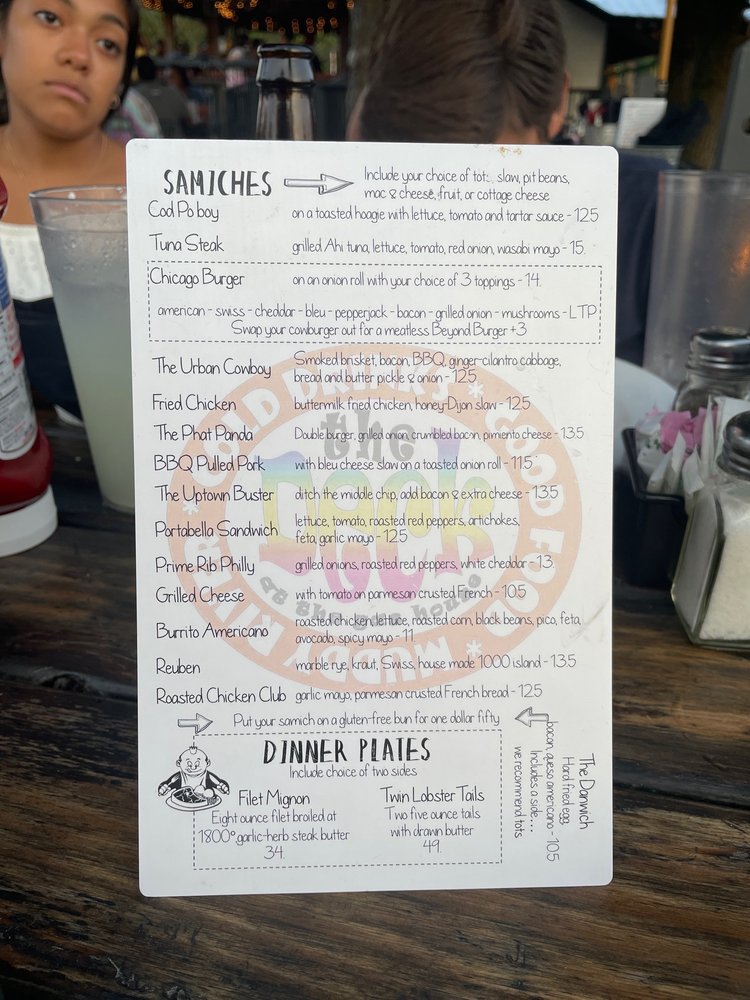 SAMICHES
Include your choice of tots, slaw, pit beans,
mac & cheese, fruit, or cottage cheese
Cod Po boy on a toasted hoagie with lettuce, tomato and tartar sauce - 12.5
Tuna Steak grilled Ahi tuna, lettuce, tomato, red onion, wasabi mayo - 15.
Chicago Burger on an onion roll with your choice of 3 toppings - 14.
american - swiss - cheddar - bleu - pepperjack - bacon - grilled onion - mushrooms - LTP
Swap your cowburger out for a meatless Beyond Burger +3
The Urban Cowboy Smoked brisket, bacon, BBQ, ginger-cilantro cabbage,
bread and butter pickle & onion - 12.5
Fried Chicken buttermilk fried chicken, honey-Dijon slaw - 12.5
The Phat Panda Double burger, grilled onion, crumbled bacon, pimento cheese - 13.5
BBQ Pulled Pork with bleu cheese slaw on a toasted onion roll - 11.5
The Uptown Buster ditch the middle chip, add bacon & extra cheese - 13.5
Portabella Sandwich lettuce, tomato, roasted red peppers, artichokes,
feta, garlic mayo - 12.5
Prime Rib Philly grilled onions, roasted red peppers, white cheddar - 13.
Grilled Cheese with tomato on parmesan crusted French - 10.5
Burrito Americano roasted chicken, lettuce, roasted corn, black beans, pico, feta,
avocado, spicy mayo - 11.
Reuben marble rye, kraut, Swiss, house made 1000 island - 13.5
Roasted Chicken Club garlic mayo, parmesan crusted French bread - 12.5
Put your samich on a gluten-free bun for one dollar fifty
DINNER PLATES
Include choice of two sides
Filet Mignon
Eight ounce filet broiled at
1800° garlic-herb steak butter
34.
Twin Lobster Tails
Two five ounce tails
with drawn butter
49.
The Danwich
Hard fried egg
bacon, queso americano - 10.5
Includes a side...
we recommend tots
COLD DRINKS * GOOD FOOD * MUDDY RIVER *
the
Deck
at the gas house